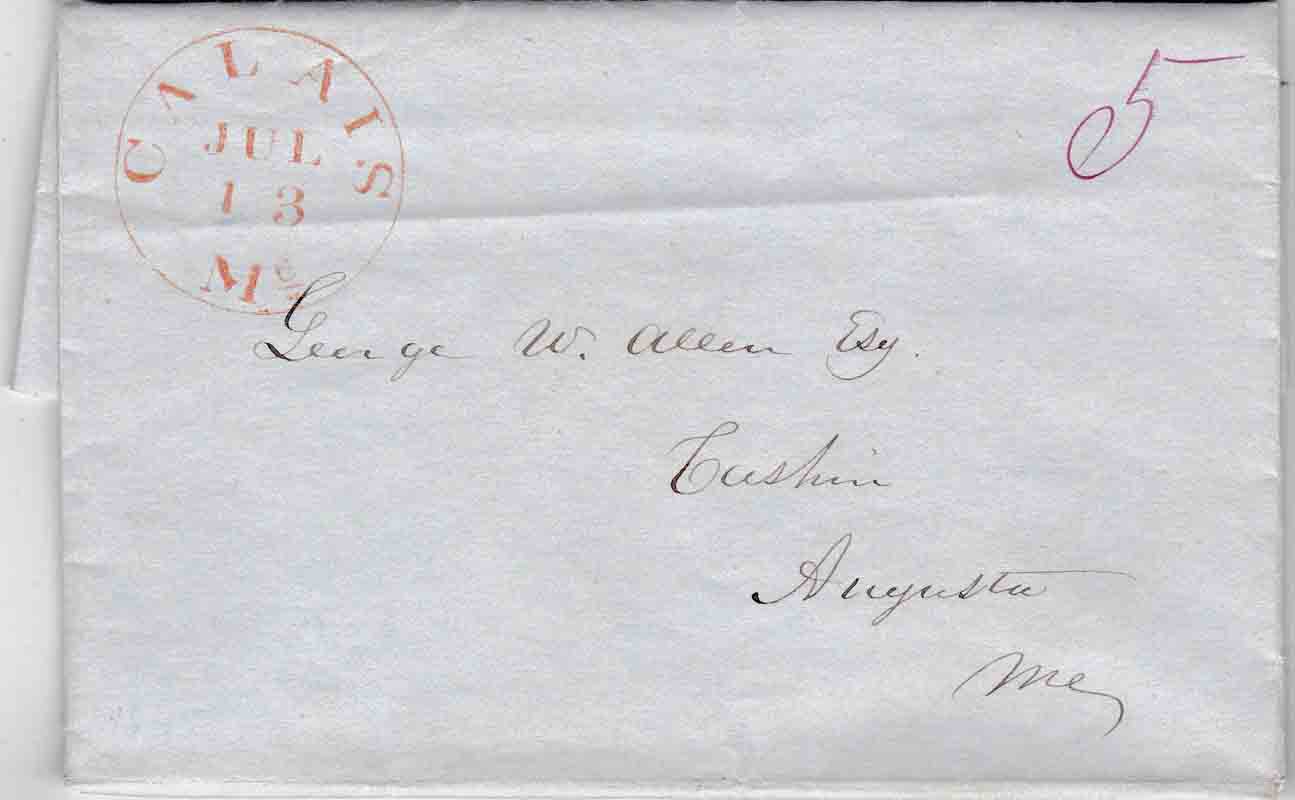 CALAIS
JUL
13
Me
5
George W. Allen Esq.
Cashier
Augusta
Me